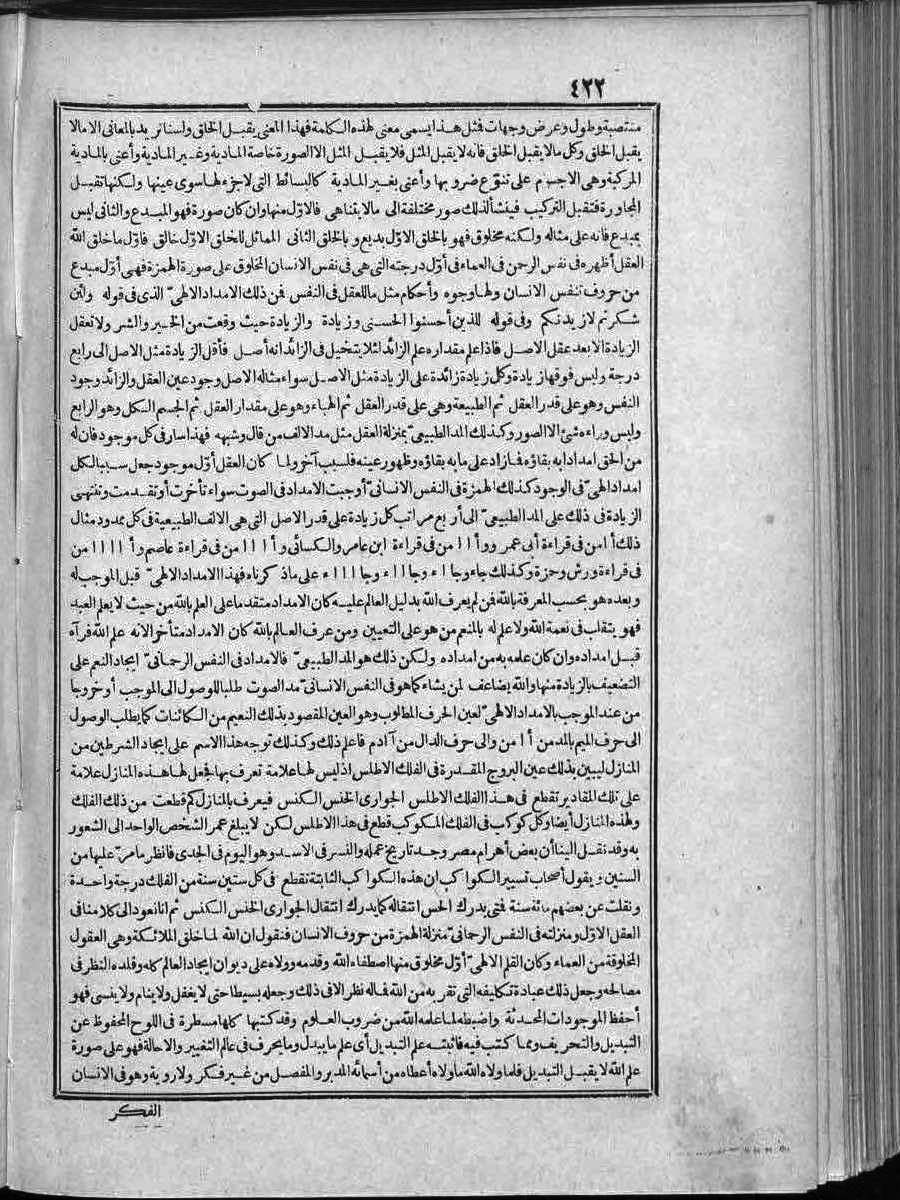 ٤٢٢
منتصبة وطول وعرض وجهات فمثل هذا يسمى معنى لهذه الكلمة فهذا المعنى يقبل الخلق ولسنا نريد بالمعانى الا مالا
يقبل الخلق وكل مالا يقبل الخلق فانه لا يقبل المثل فلا يقبل المثل الا الصورة خاصة المادية وغير المادية وأعنى بالمادية
المركبة وهى الاجسام على تنوّع ضروبها وأعنى بغير المادية كالبسائط التى لاجزء لها سوى عينها ولكنها تقبل
المجاورة فتقبل التركيب فينشأ لذلك صور مختلفة الى مالا يتناهى فالاوّل منها وان كان صورة فهو المبدع والثانى ليس
بمبدع فانه على مثاله ولكنه مخلوق فهو بالخلق الاوّل بديع وبالخلق الثانى المماثل للخلق الاوّل خالق فاوّل ماخلق الله
العقل أظهره فى نفس الرحمن فى العماء فى أوّل درجته التى هى فى نفس الانسان المخلوق على صورة الهمزة فهى أوّل مبدع
من حروف تنفس الانسان ولها وجوه وأحكام مثل ما للعقل فى النفس فمن ذلك الامداد الالهىّ الذى فى قوله ولئن
شكرتم لازيدنكم وفى قوله للذين أحسنوا الحسنى وزيادة والزيادة حيث وقعت من الخير والشر ولا تعقل
الزيادة الا بعد عقل الاصل فاذا علم مقداره علم الزائد لئلا يتخيل فى الزائد انه أصل فأقل الزيادة مثل الاصل الى رابع
درجة وليس فوقها زيادة وكل زيادة زائدة على الزيادة مثل الاصل سواء مثاله الاصل وجود عين العقل والزائد وجود
النفس وهو على قدر العقل ثم الطبيعة وهى على قدر العقل ثم الهباء وهو على مقدار العقل ثم الجسم الكل وهو الرابع
وليس وراءه شئ الا الصور وكذلك المد الطبيعىّ بمنزلة العقل مثل مد الالف من قال وشبهه فهذا سار فى كل موجود فان له
من الحق امدادا به بقاؤه فمازاد على مابه بقاؤه وظهور عينه فلسبب آخر ولما كان العقل أوّل موجود جعل سببا لكل
امداد الهىّ فى الوجود كذلك الهمزة فى النفس الانسانىّ أوجبت الامداد فى الصوت سواء تأخرت أو تقدمت وتنتهى
الزيادة فى ذلك على المد الطبيعىّ الى أربع مراتب كل زيادة على قدر الاصل التى هى الالف الطبيعية فى كل ممدود مثال
ذلك أ امن فى قراءة أبى عمر و وأ ا ا من فى قراءة ابن عامر والكسائى و أ ا ا ا من فى قراءة عاصم و أ ا ا ا ا من
فى قراءة ورش وحمزة وكذلك جاء وجا ا ء وجا ا ا ء وجا ا ا ا ء على ماذكرناه فهذا الامداد الالهىّ قبل الموجب له
وبعده هو بحسب المعرفة بالله فمن لم يعرف الله بدليل العالم عليه كان الامداد متقدما على العلم بالله من حيث لا يعلم العبد
فهو يتقلب فى نعمة الله ولا علم له بالمنعم من هو على التعيين ومن عرف العالم بالله كان الامداد متأخرا لانه علم الله فرآه
قبل امداده وان كان علمه به من امداده ولكن ذلك هو المد الطبيعىّ فالامداد فى النفس الرحمانىّ ايجاد النعم على
التضعيف بالزيادة منها والله يضاعف لمن يشاء كما هو فى النفس الانسانىّ مد الصوت طلبا للوصول الى الموجب أو خروجا
من عند الموجب بالامداد الالهىّ لعين الحرف المطلوب وهو العين المقصود بذلك النعيم من الكائنات كما يطلب الوصول
الى حرف الميم بالمد من أ امن والى حرف الدال من آ ادم فاعلم ذلك وكذلك توجه هذا الاسم على ايجاد الشرطين من
المنازل ليبين بذلك عين البروج المقدرة فى الفلك الاطلس اذ ليس لها علامة تعرف بها فجعل لها هذه المنازل علامة
على تلك المقادير تقطع فى هذا الفلك الاطلس الجوارى الخنس الكنس فيعرف بالمنازل كم قطعت من ذلك الفلك
ولهذه المنازل أيضا وكل كوكب فى الفلك المكوكب قطع فى هذا الاطلس لكن لا يبلغ عمر الشخص الواحد الى الشعور
به وقد نقل الينا أن بعض أهرام مصر وجد تاريخ عمله والنسر فى الاسد وهو اليوم فى الجدى فانظر مامرّ عليها من
السنين ويقول أصحاب تسيير الكواكب ان هذه الكواكب الثابتة تقطع فى كل ستين سنة من الفلك درجة واحدة
ونقلت عن بعضهم مائة سنة فمتى يدرك الحس انتقاله كما يدرك انتقال الجوارى الخنس الكنس ثم انا نعود الى كلامنا فى
العقل الاوّل ومنزلته فى النفس الرحمانىّ منزلة الهمزة من حروف الانسان فنقول ان الله لما خلق الملائكة وهى العقول
المخلوقة من العماء وكان القلم الالهىّ أوّل مخلوق منها اصطفاه الله وقدمه وولاه على ديوان ايجاد العالم كله وقلده النظر فى
مصالحه وجعل ذلك عبادة تكليفه التى تقربه من الله فماله نظر الا فى ذلك وجعله بسيطا حتى لا يغفل ولا ينام ولا ينسى فهو
أحفظ الموجودات المحدثة واضبطه لما علمه الله من ضروب العلوم وقد كتبها كلها مسطرة فى اللوح المحفوظ عن
التبديل والتحريف ومما كتب فيه فاثبته علم التبديل أى علم ما يبدل وما يحرف فى عالم التغيير والاحالة فهو على صورة
علم الله لا يقبل التبديل فلما ولاه الله ماولاه أعطاه من أسمائه المدبر والمفصل من غير فكر ولا روية وهو فى الانسان
الفكر